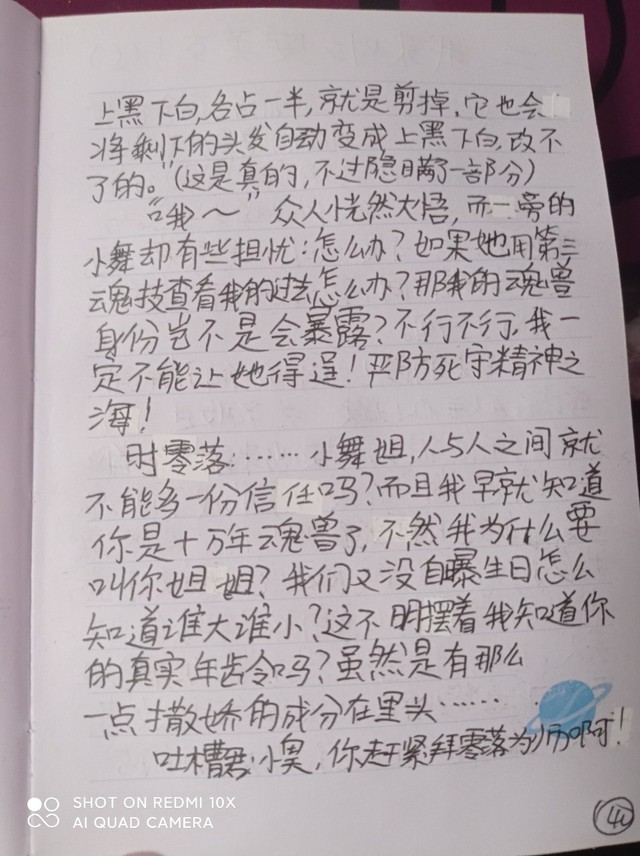 上黑下白,各占一半,就是剪掉,它也会
将剩下的头发自动变成上黑下白,改不
了的。”(这是真的,不过隐瞒了一部分)
“哦～” 众人恍然大悟,而一旁的
小舞却有些担忧:怎么办?如果她用第三
魂技查看我的过去怎么办?那我的魂兽
身份岂不是会暴露?不行不行,我一
定不能让她得逞!严防死守精神之
海!
时零落:……小舞姐,人与人之间就
不能多一份信任吗?而且我早就知道
你是十万年魂兽了,不然我为什么要
叫你姐姐?我们又没自曝生日怎么
知道谁大谁小?这不明摆着我知道你
的真实年龄吗?虽然是有那么
一点撒娇的成分在里头……
吐槽君:小奥,你赶紧拜零落为师啊!
SHOT ON REDMI 10X
AI QUAD CAMERA